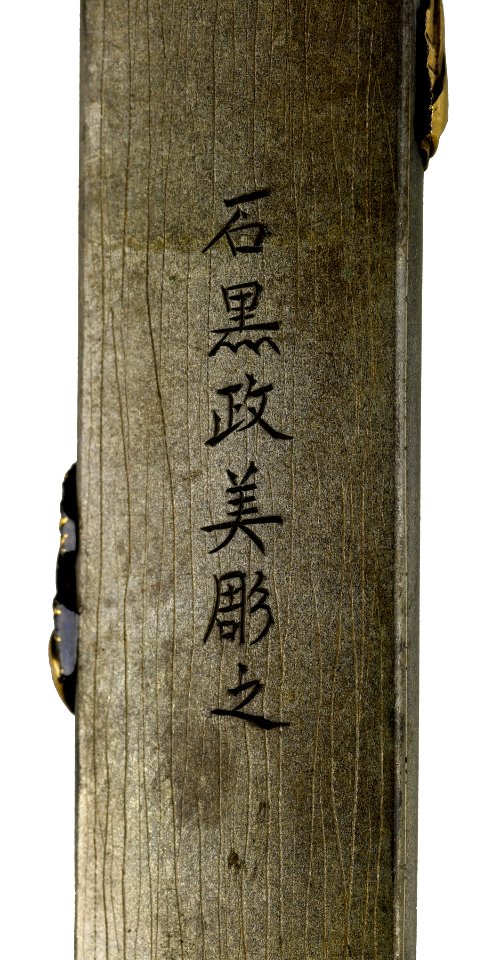 石黒政美彫之